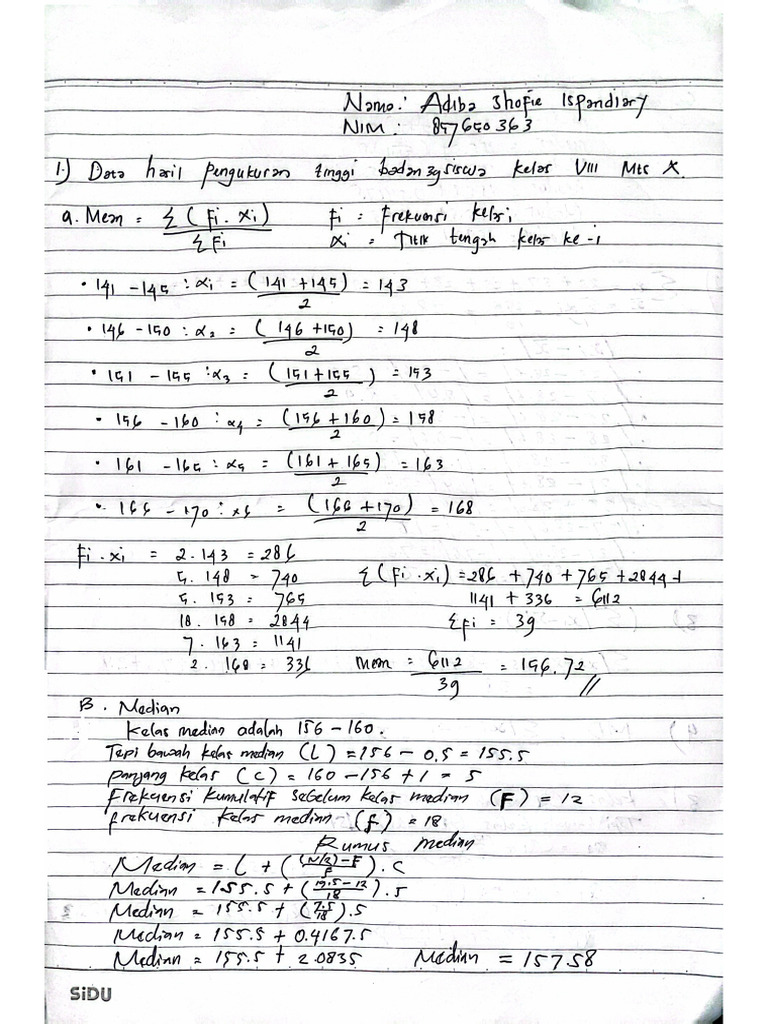 Nama: Adiba Shofie Ispandiary
NIM: 857650363
1.) Data hasil pengukuran tinggi badan 39 siswa kelas VIII Mts X.
a. Mean = Σ(fi.xi) / Σfi fi = frekuensi kelas i
xi = Titik tengah kelas ke-i
• 141 - 145 : x1 = (141 + 145) / 2 = 143
• 146 - 150 : x2 = (146 + 150) / 2 = 148
• 151 - 155 : x3 = (151 + 155) / 2 = 153
• 156 - 160 : x4 = (156 + 160) / 2 = 158
• 161 - 165 : x5 = (161 + 165) / 2 = 163
• 166 - 170 : x6 = (166 + 170) / 2 = 168
fi.xi = 2.143 = 286
5.148 = 740 Σ(fi.xi) = 286 + 740 + 765 + 2844 +
5.153 = 765 1141 + 336 = 6112
18.158 = 2844 Σfi = 39
7.163 = 1141
2.168 = 336 Mean = 6112 / 39 = 156.72 //
B. Median
Kelas median adalah 156 - 160.
Tepi bawah kelas median (L) = 156 - 0.5 = 155.5
panjang kelas (C) = 160 - 156 + 1 = 5
Frekuensi kumulatif sebelum kelas median (F) = 12
frekuensi kelas median (f) = 18
Rumus median
Median = L + ((N/2) - F / f) . C
Median = 155.5 + (19.5 - 12 / 18) . 5
Median = 155.5 + (7.5 / 18) . 5
Median = 155.5 + 0.4167.5
Median = 155.5 + 2.0835 Median = 157.58
SiDU